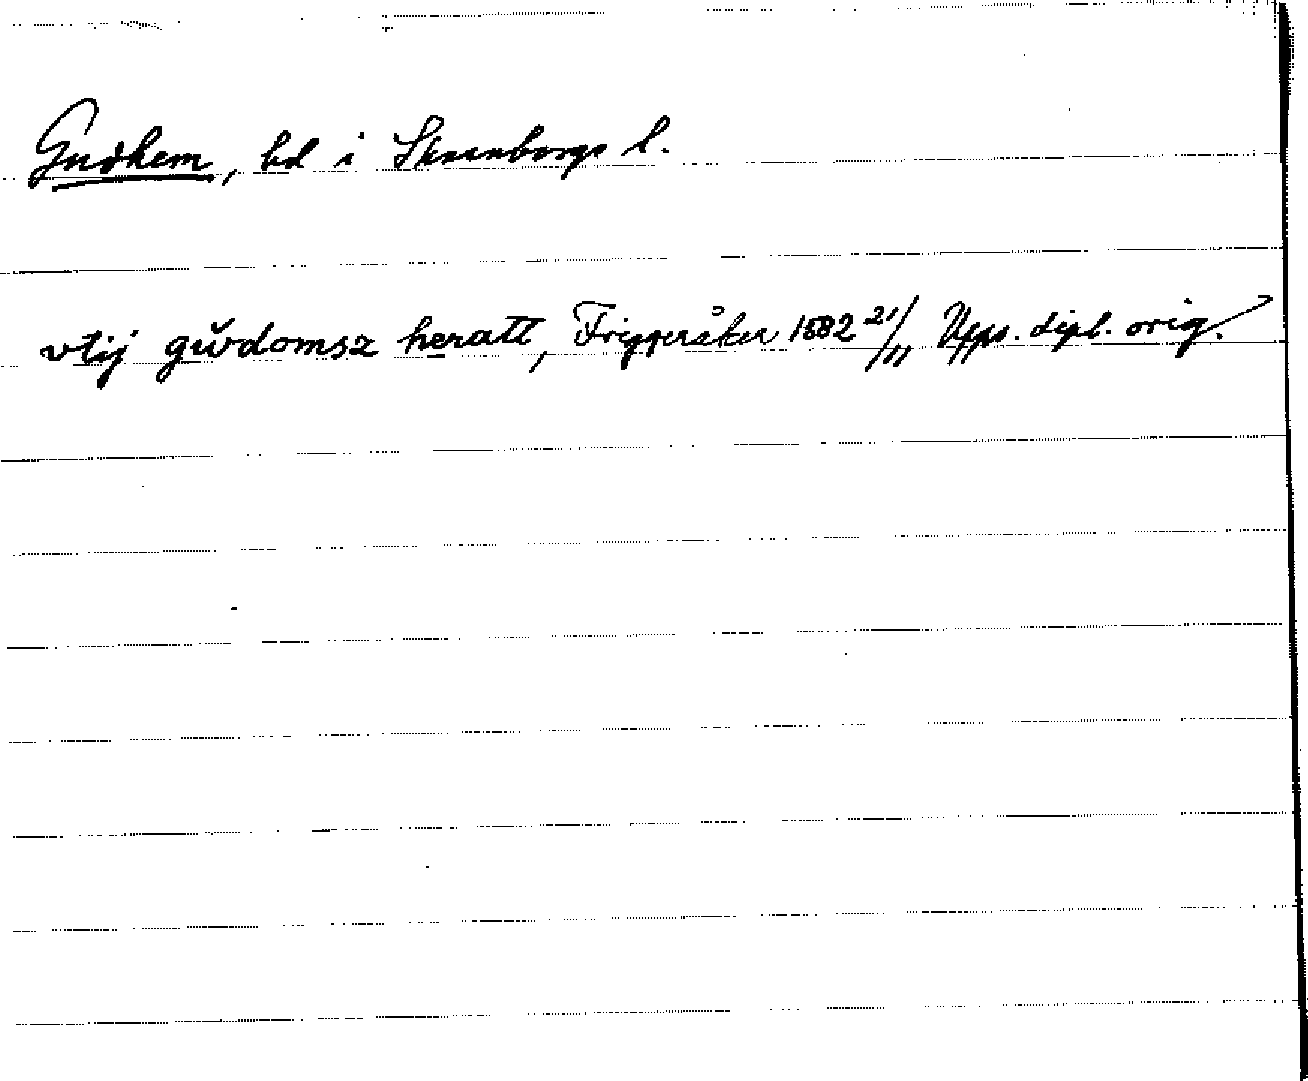 Gudhem, hd i Skaraborgs l.
vtij gŭdomsz heratt, Friggeråker 1582 21/11 Upps. dipl. orig.